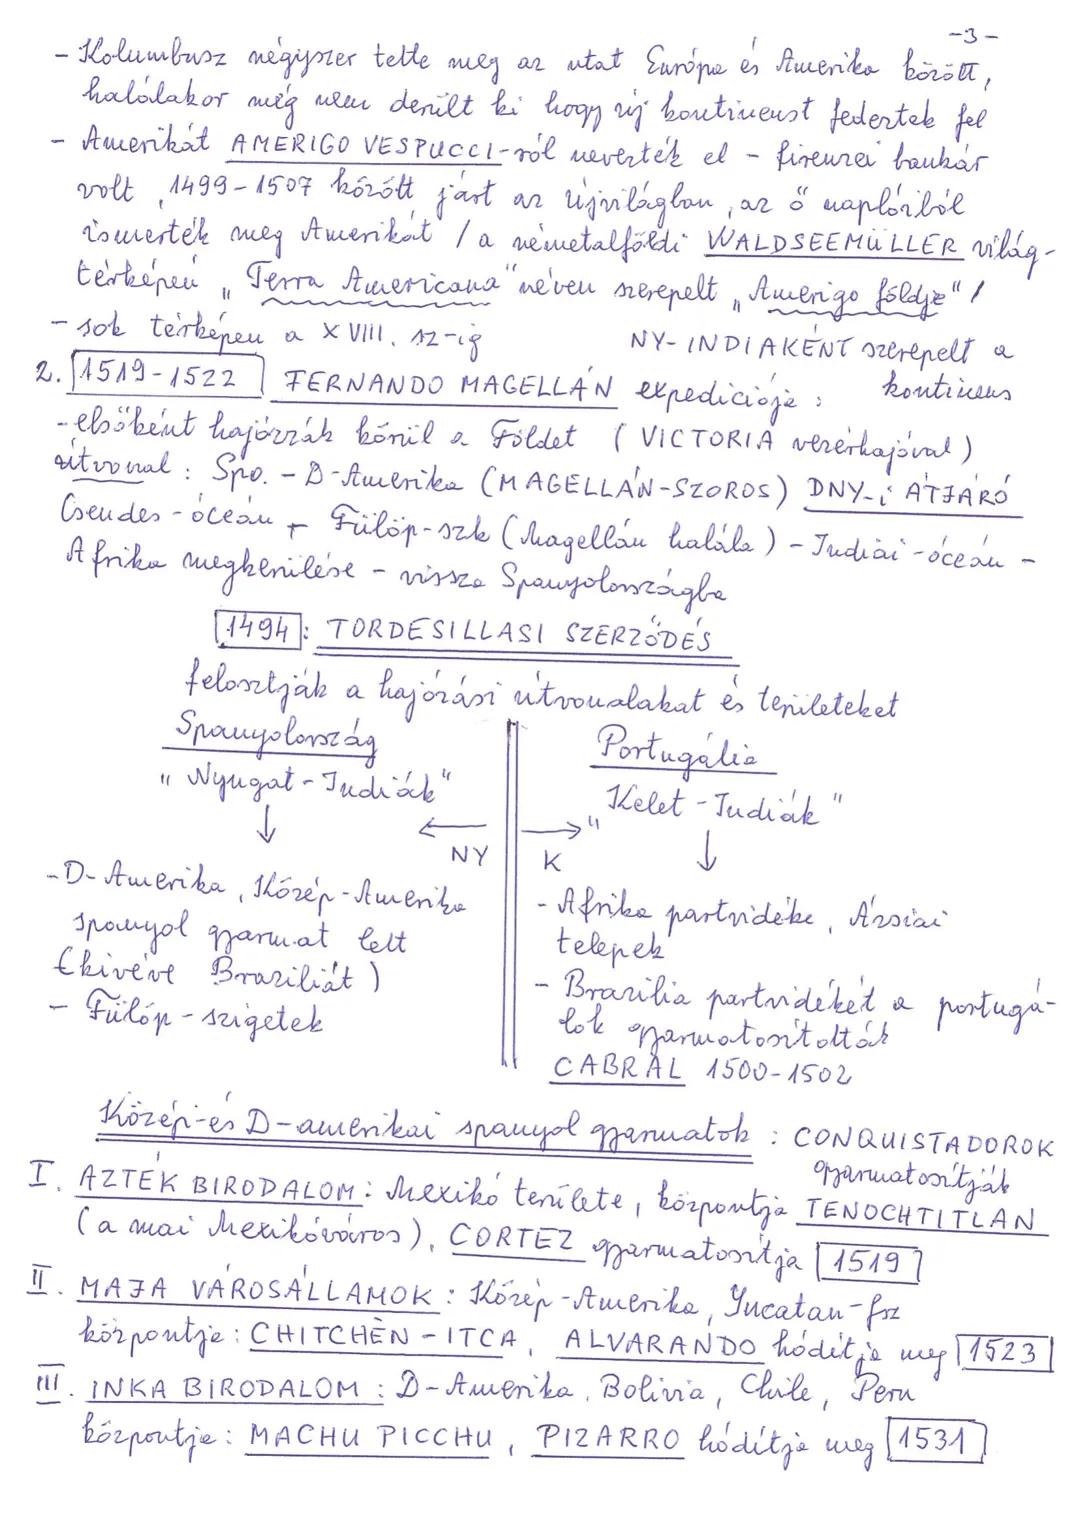 -3-
- Kolumbusz négyszer tette meg az utat Európa és Amerika között,
halálakor még nem derült ki hogy új kontinenst fedeztek fel
- Amerikát AMERIGO VESPUCCI-ról nevezték el - firenzei bankár
volt, 1499-1507 között járt az újvilágban, az ő naplóiból
ismerték meg Amerikát / a németalföldi WALDSEEMÜLLER világ-
térképen „Terra Americana" néven szerepelt „Amerigo földje" /
- sok térképen a XVIII. sz-ig NY-INDIAKÉNT szerepelt a
kontinens
2. 1519-1522 FERNANDO MAGELLÁN expediciója:
- elsőként hajózzák körül a Földet (VICTORIA vezérhajóval)
útvonal: Spo. - D-Amerika (MAGELLÁN-SZOROS) DNY-i ÁTJÁRÓ
Csendes-óceán - Fülöp-szk (Magellán halála) - Indiai-óceán -
Afrika megkerülése - vissza Spanyolországba
1494: TORDESILLASI SZERZŐDÉS
felosztják a hajózási útvonalakat és területeket
Spanyolország
"Nyugat-Indiák"
↓
← NY
- D-Amerika, Közép-Amerika
spanyol gyarmat lett
(kivéve Braziliát)
- Fülöp-szigetek
Portugália
„Kelet-Indiák"
→ K
↓
- Afrika partvidéke, Ázsiai
telepek
- Brazilia partvidékét a portugá-
lok gyarmatosították
CABRAL 1500-1502
Közép-és D-amerikai spanyol gyarmatok: CONQUISTADOROK
gyarmatosítják
I. AZTÉK BIRODALOM: Mexikó területe, központja TENOCHTITLAN
(a mai Mexikóváros), CORTEZ gyarmatosítja 1519
II. MAJA VÁROSÁLLAMOK: Közép-Amerika, Yucatan-fsz
központja: CHITCHÉN-ITCA, ALVARANDO hódítja meg 1523
III. INKA BIRODALOM: D-Amerika, Bolivia, Chile, Peru
központja: MACHU PICCHU, PIZARRO hódítja meg 1531